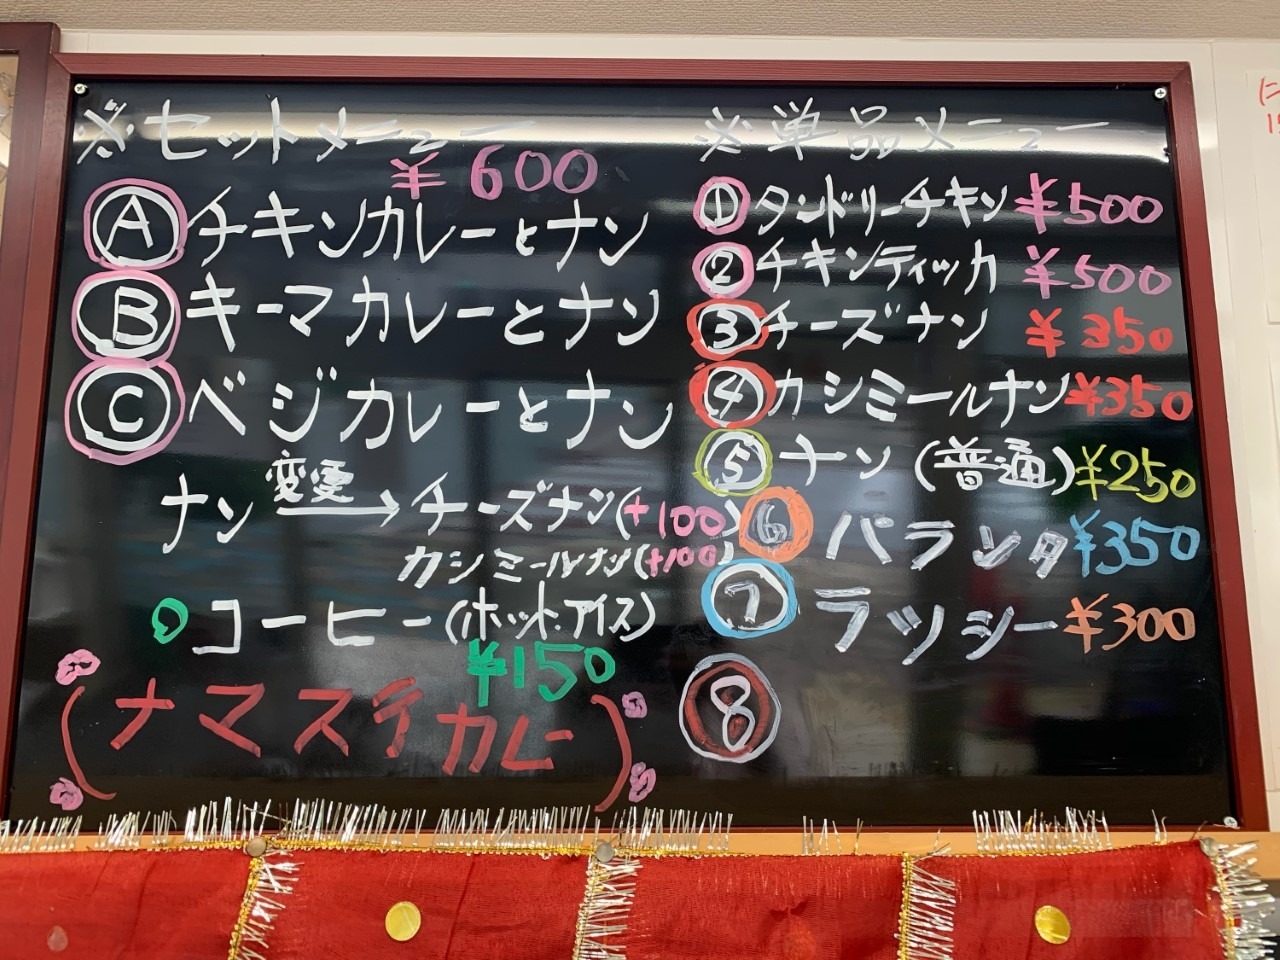 ※セットメニュー
¥600
Ⓐ チキンカレーとナン
Ⓑ キーマカレーとナン
Ⓒ ベジカレーとナン
ナン 変更→ チーズナン(+100)
カシミールナン(+100)
コーヒー(ホット.アイス)
¥150
(ナマステカレー)
※単品メニュー
① タンドリーチキン ¥500
② チキンティッカ ¥500
③ チーズナン ¥350
④ カシミールナン ¥350
⑤ ナン(普通) ¥250
⑥ パランタ ¥350
⑦ ラッシー ¥300
⑧